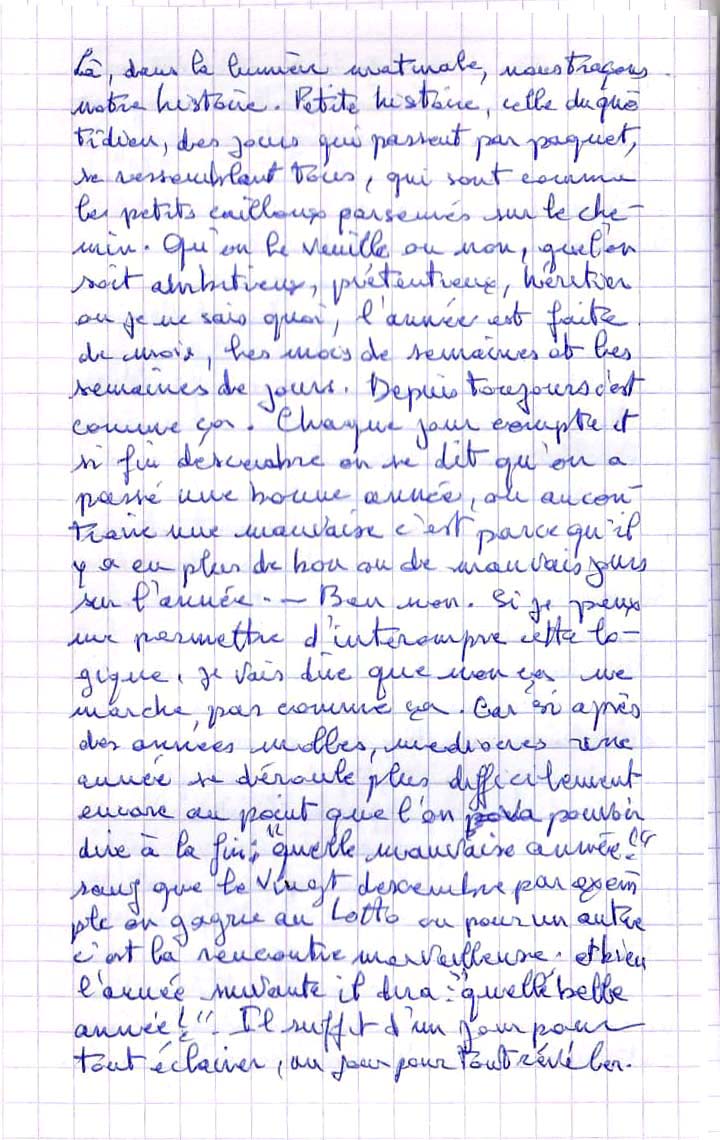 Là, dans la lumière matinale, nous traçons
notre histoire. Petite histoire, celle du quo
tidien, des jours qui passent par paquet,
se ressemblant tous, qui sont comme
les petits cailloux parsemés sur le che-
min. Qu'on le veuille ou non, quel'on
soit ambitieux, prétentieux, héritier
ou je ne sais quoi, l'année est faite
de mois, les mois de semaines et les
semaines de jours. Depuis toujours c'est
comme ça. Chaque jour compte et
si fin descembre on se dit qu'on a
passé une bonne année, ou au con-
traire une mauvaise c'est parce qu'il
y a eu plus de bon ou de mauvais jours
sur l'année. — Ben non. Si je peux
me permettre d'interompre cette lo-
gique, je vais dire que non ça ne
marche pas comme ça. Car si après
des années molles, mediocres une
année se déroule plus difficilement
encore au point que l'on va pouvoir
dire à la fin: "quelle mauvaise année!"
sauf que le vingt descembre par exem
ple on gagne au Lotto ou pour un autre
c'est la rencontre merveilleuse. et bien
l'année suivante il dira: "quelle belle
année!". Il suffit d'un jour pour
tout éclairer, un jour pour tout révéler.